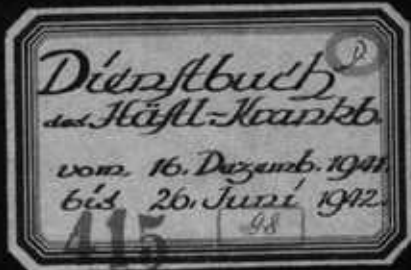 Dienstbuch
des Häftl=Krankb.
vom 16. Dezemb. 1941.
bis 26. Juni 1942.
415
98